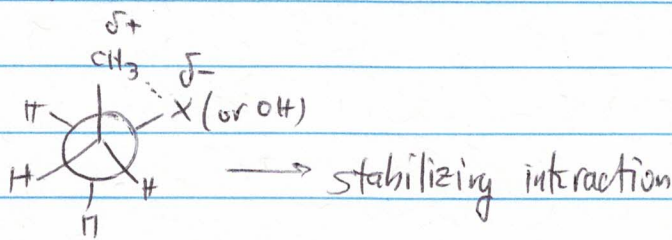 δ+
CH3 δ-
H X (or OH)
H H → stabilizing interaction
H